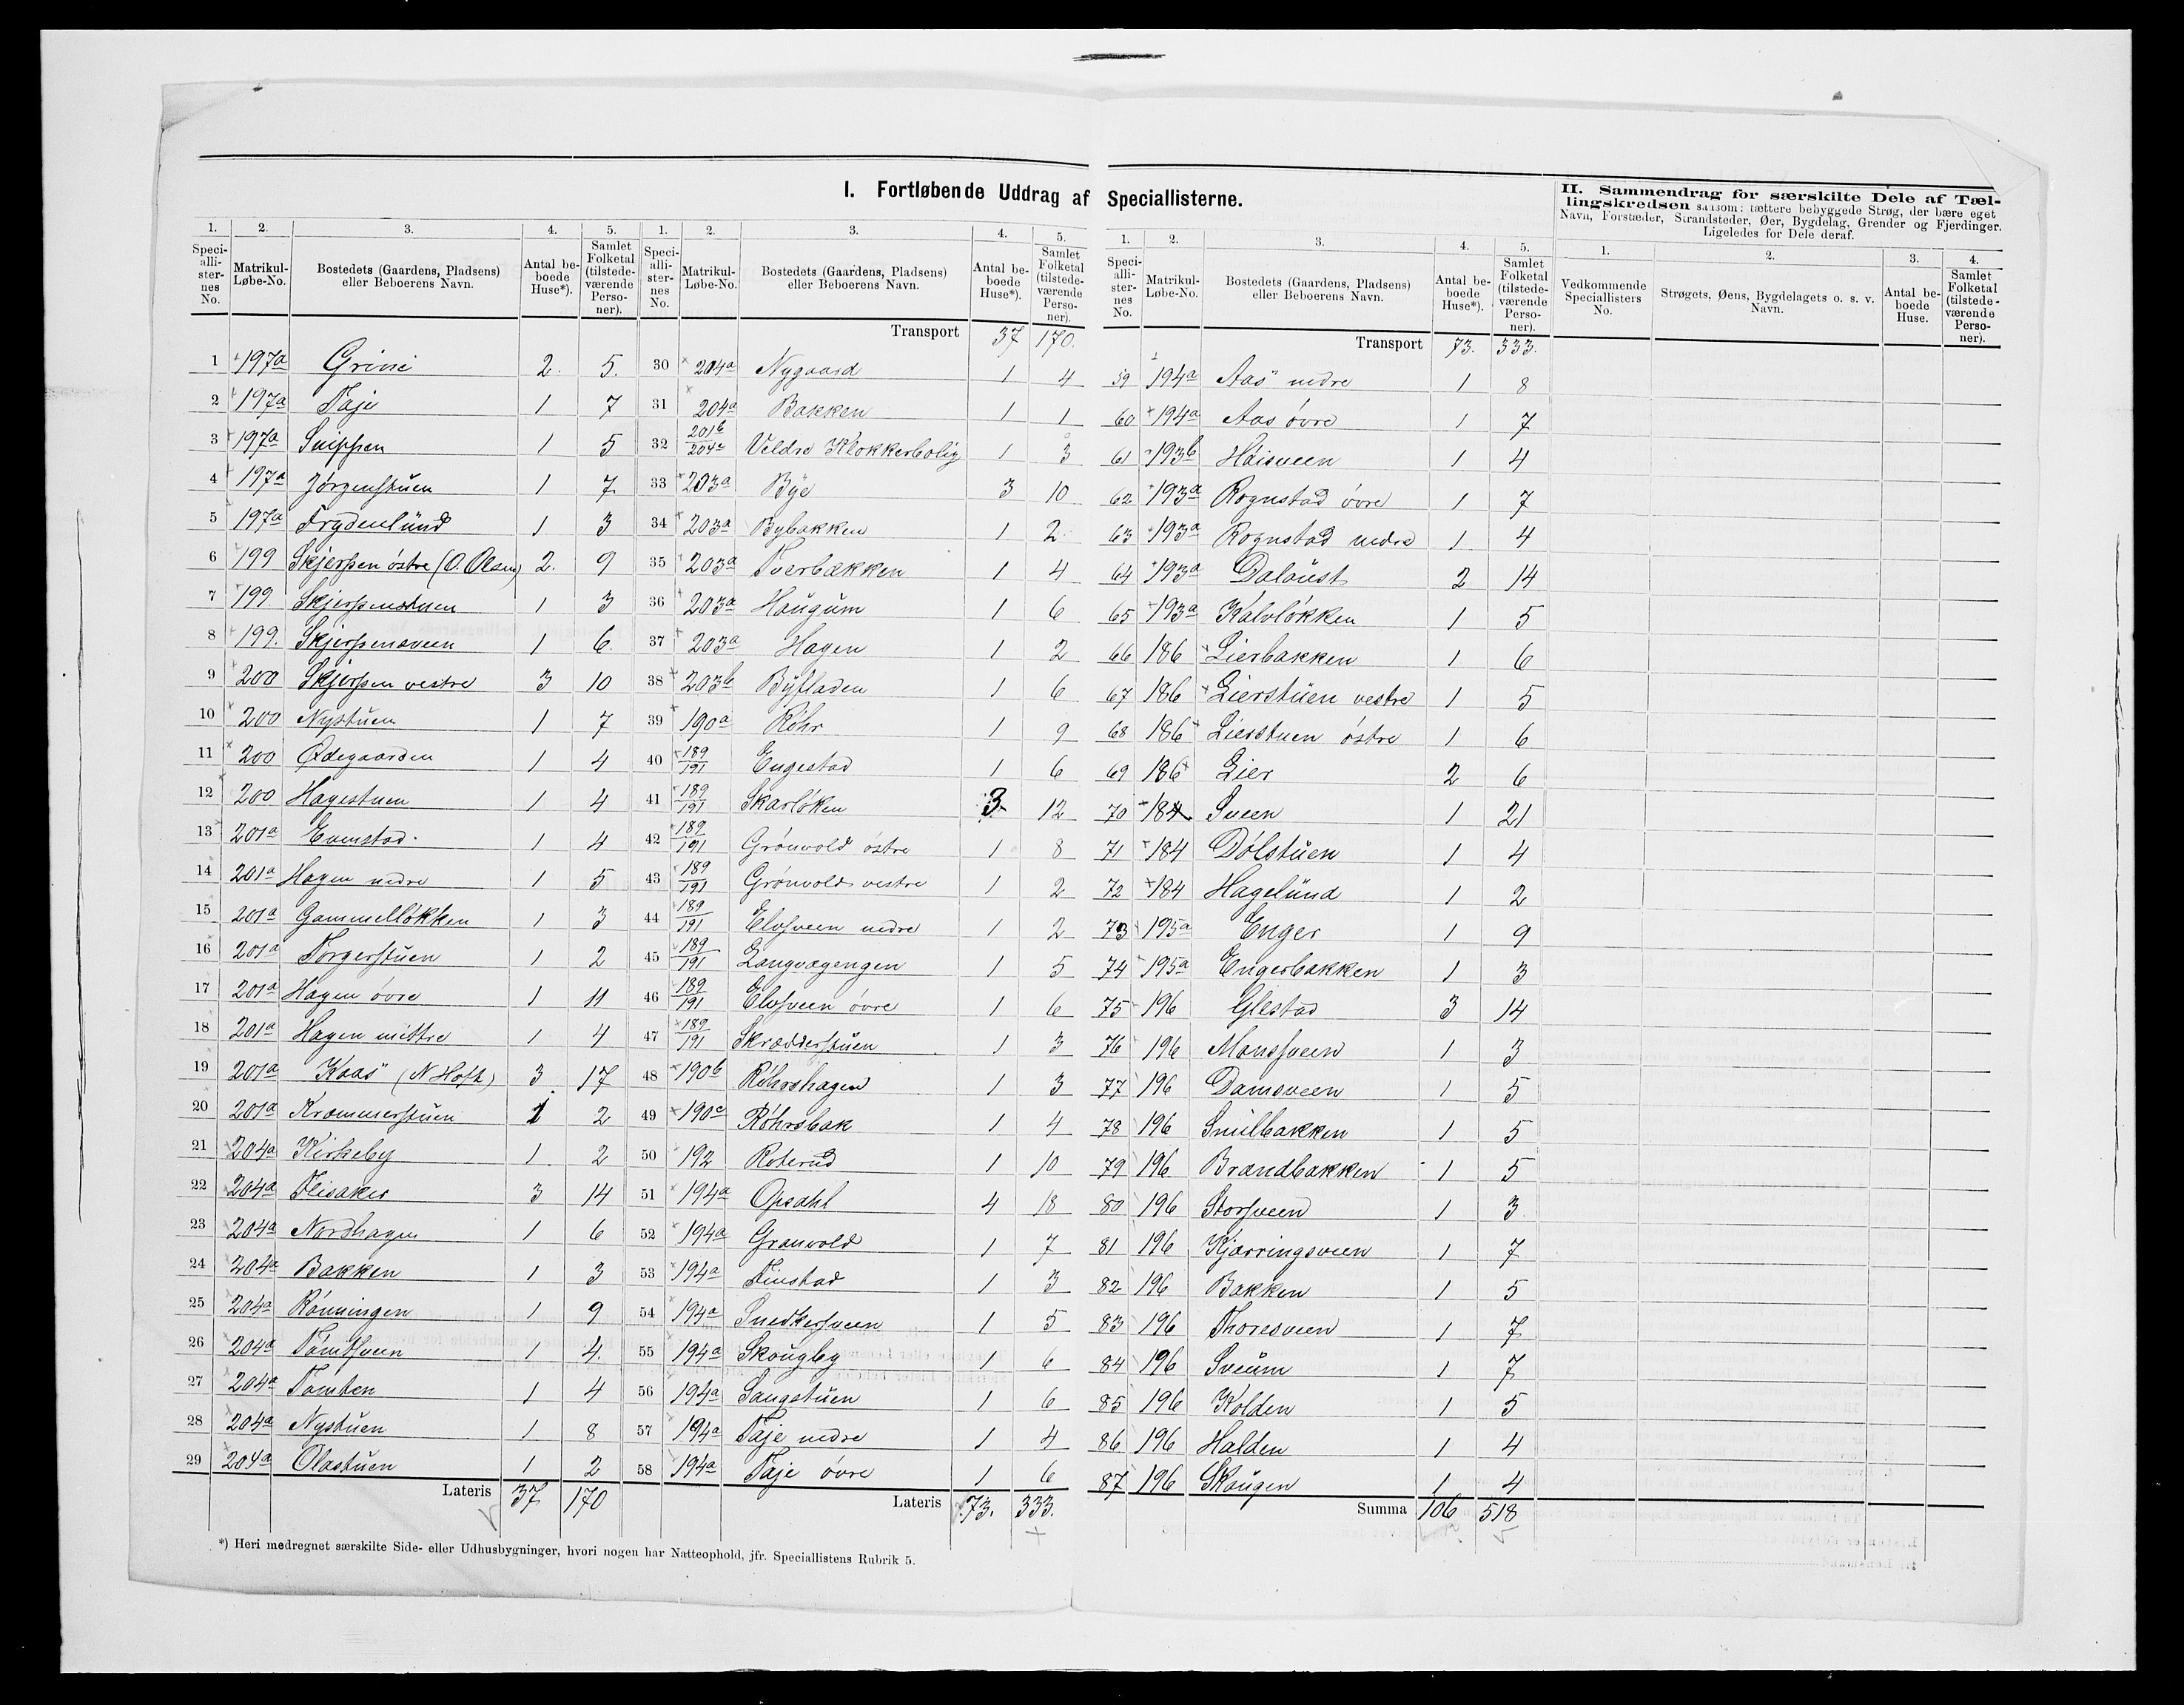 I. Fortløbende Uddrag af Speciallisterne.
II. Sammendrag for særskilte Dele af Tæl-
lingskredsen saasom: tættere bebyggede Strøg, der bære eget
Navn, Forstæder, Strandsteder, Øer, Bygdelag, Grender og Fjerdinger.
Ligeledes for Dele deraf.
1. 2. 3. 4. 5. 1. 2. 3. 4. 5.
Speci-alli-ster-nes No. Matrikul-Løbe-No. Bostedets (Gaardens, Pladsens) eller Beboerens Navn. Antal be-boede Huse*). Samlet Folketal (tilstede-værende Perso-ner).
Speci-alli-ster-nes No. Matrikul-Løbe-No. Bostedets (Gaardens, Pladsens) eller Beboerens Navn. Antal be-boede Huse*). Samlet Folketal (tilstede-værende Perso-ner).
1 197a Grini 2. 5.
2 197a Taje 1 7
3 197a Snippen 1 5
4 197a Jørgenstuen 1 7
5 197a Frydenlund 1 3
6 199 Skjerpen østre (O. Olsen) 2. 9
7 199 Skjerpenstuen 1 3
8 199. Skjerpensveen 1 6
9 200 Skjerpen vestre 3 10
10 200 Nystuen 1 7
11 200 Ødegaarden 1 4
12 200 Hagestuen 1 4
13 201a Evenstad 1 4
14 201a Hagen nedre 1 5
15 201a Gammelløkken 1 3
16 201a Torgerstuen 1 2
17 201a Hagen øvre 1 11
18 201a Hagen mittre 1 4
19 201a Kaas (N Hoft) 3 17
20 201a Kræmmerstuen 1 2
21 204a Kirkeby 1 2
22 204a Flisaker 3 14
23 204a Nordhagen 1 6
24 204a Bakken 1 3
25 204a Rønningen 1 9
26 204a Tømtsveen 1 4.
27 204a Tomten 1 4
28 204a Nystuen 1 8
29 204a Olastuen 1 2
Lateris 37 170
Transport 37 170.
30 204a Nygaard 1 4
31 204a Bakken 1 1
32 201b/204c Veldre Klokkerbolig 1 3
33 203a Bye 3 10
34 203a Bybakken 1 2
35 203a Tverbakken 1 4
36 203a Haugum 1 6
37 203a Hagen 1 2
38 203b Byfladen 1 6
39 190a Røhr 1 9
40 189/191 Engestad 1 6
41 189/191 Skarløken 3 12
42 189/191 Grønvold østre 1 8
43 189/191 Grønvold vestre 1 2
44 189/191 Elvsveen nedre 1 2
45 189/191 Langvagengen 1 5
46 189/191 Elvsveen øvre 1 6
47 189/191 Skrædderstuen 1 3
48 190b Røhrshagen 1 3
49 190c Røhrsbak 1 4
50 192 Roterud 1 10
51 194a Opsahl 4 18
52 194a Granvold 1 7
53 194a Finstad 1 3
54 194a Snedkersveen 1 5
55 194a Skougby 1 6
56 194a Saugstuen 1 6
57 194a Taje nedre 1 4
58 194a Taje øvre 1 6
Lateris 73. 333.
1. 2. 3. 4. 5.
Speci-alli-ster-nes No. Matrikul-Løbe-No. Bostedets (Gaardens, Pladsens) eller Beboerens Navn. Antal be-boede Huse*). Samlet Folketal (tilstede-værende Perso-ner).
Transport 73. 333.
59 194a Aas nedre 1 8
60 194a Aas øvre 1 7
61 193b Høisveen 1 4
62 193a Rognstad øvre 1 7
63 193a Rognstad nedre 1 4
64 193a Daloust 2 14
65 193a Kalvløkken 1 5
66 186 Lierbakken 1 6
67 186 Lierstuen vestre 1 5
68 186 Lierstuen østre 1 6
69 186 Lier 2 6
70 184 Sveen 1 21
71 184 Dølstuen 1 4
72 184 Hagelund 1 2
73 195a Enger 1 9
74 195a Engerbakken 1 3
75 196 Glestad 3 14
76 196 Monssveen 1 3
77 196 Damsveen 1 5
78 196 Smilbakken 1 5
79 196 Brændbakken 1 5
80 196 Storsveen 1 3
81 196 Kjærringsveen 1 7
82 196 Bakken 1 5
83 196 Thoresveen 1 7
84 196 Sveum 1 7
85 196 Kolden 1 5
86 196 Halden 1 4
87 196 Skougen 1 4
Summa 106 518
1. 2. 3. 4.
Vedkommende Speciallisters No. Strøgets, Øens, Bygdelagets o. s. v. Navn. Antal be-boede Huse. Samlet Folketal (tilstede-værende Perso-ner).
*) Heri medregnet særskilte Side- eller Udhusbygninger, hvori nogen har Natteophold, jfr. Speciallistens Rubrik 5.